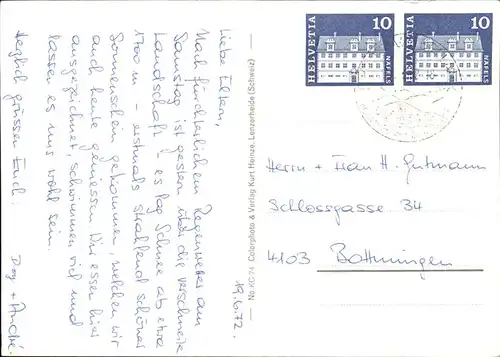 Liebe Eltern,
Nach fürchterlichem Regenwetter am
Samstag ist gestern über die verschneite
Landschaft - es lag Schnee ab etwa
1700 m - erstmals strahlend schöner
Sonnenschein gekommen, welchen wir
auch heute geniessen. Wir essen hier
ausgezeichnet, schwimmen viel und
lassen es uns wohl sein.
Herzlich grüssen Euch:
+ André
19.6.72.
No. KC 74 Colorphoto & Verlag Kurt Heinze, Lenzerheide (Schweiz)
HELVETIA 10 NÄFELS
HELVETIA 10 NÄFELS
Herrn + Frau H. Gutmann
Schlossgasse 34
4103 Bottmingen